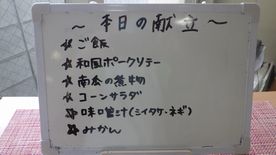 ～本日の献立～
☆ご飯
☆和風ポークソテー
☆南瓜の煮物
☆コーンサラダ
☆味噌汁(シイタケ・ネギ)
☆みかん